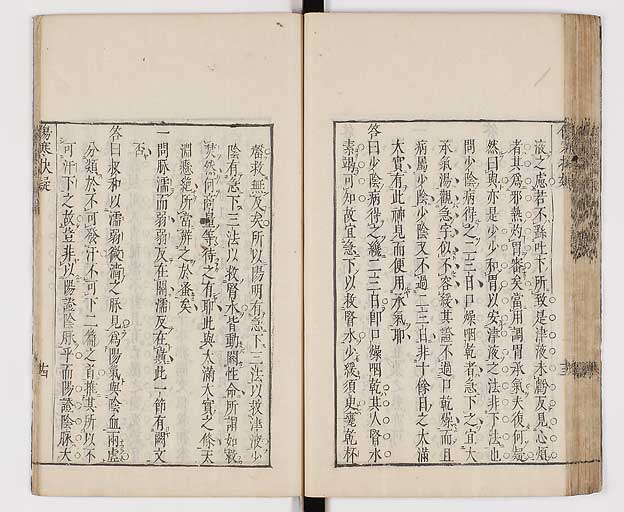 液之慮若不經吐下所致是津液未虧反見心煩
者其為邪熱灼胃審矣當用調胃承氣夫復何疑
然曰與亦是少少和胃以安津液之法非下法也
問少陰病得之二三日口燥咽乾者急下之宜大
承氣湯觀急字似不容緩其證不過口乾燥而且
病屬少陰少陰又不過二三日非十餘日之大滿
大實有此神見而便用承氣耶
答曰少陰病得之纔二三日即口燥咽乾其人腎水
素竭可知故宜急下以救腎水少緩須臾甕乾杯
罄救無及矣所以陽明有急下三法以救津液少
陰有急下三法以救腎水皆動關性命所謂如救
焚然何可等待之有耶此與大滿大實之條天
淵懸絕所當辨之於蚤矣
一問脉濡而弱弱反在關濡反在巔此一節有闕文
否
答曰叔和以濡弱微濇之脉見為陽氣與陰血兩虛
分類於不可發汗不可下二篇之首推其所以不
可汗下之故豈非以陽證陰脉乎而陽證陰脉大
傷寒決疑
十四